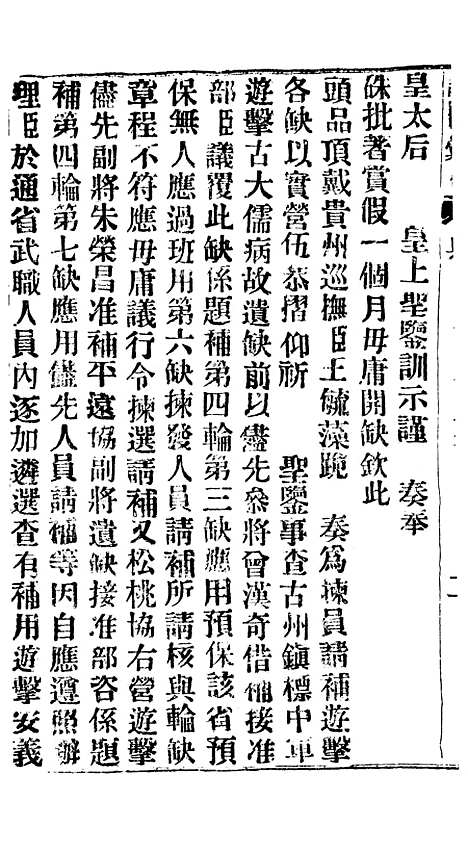 皇太后　　皇上聖鑒訓示謹　奏奉
硃批著賞假一個月毋庸開缺欽此
頭品頂戴貴州巡撫臣王毓藻跪　奏爲揀員請補遊擊
各缺以實營伍恭摺仰祈　　聖鑒事查古州鎮標中軍
遊擊古大儒病故遺缺前以儘先叅將曾漢奇借補接准
部臣議覆此缺係題補第四輪第三缺應用預保該省預
保無人應過班用第六缺揀發人員請補所請核與輪缺
章程不符應毋庸議行令揀選請補又松桃協右營遊擊
儘先副將朱榮昌准補平遠協副將遺缺接准部咨係題
補第四輪第七缺應用儘先人員請補等因自應遵照辦
理臣於通省武職人員內逐加遴選查有補用遊擊安義